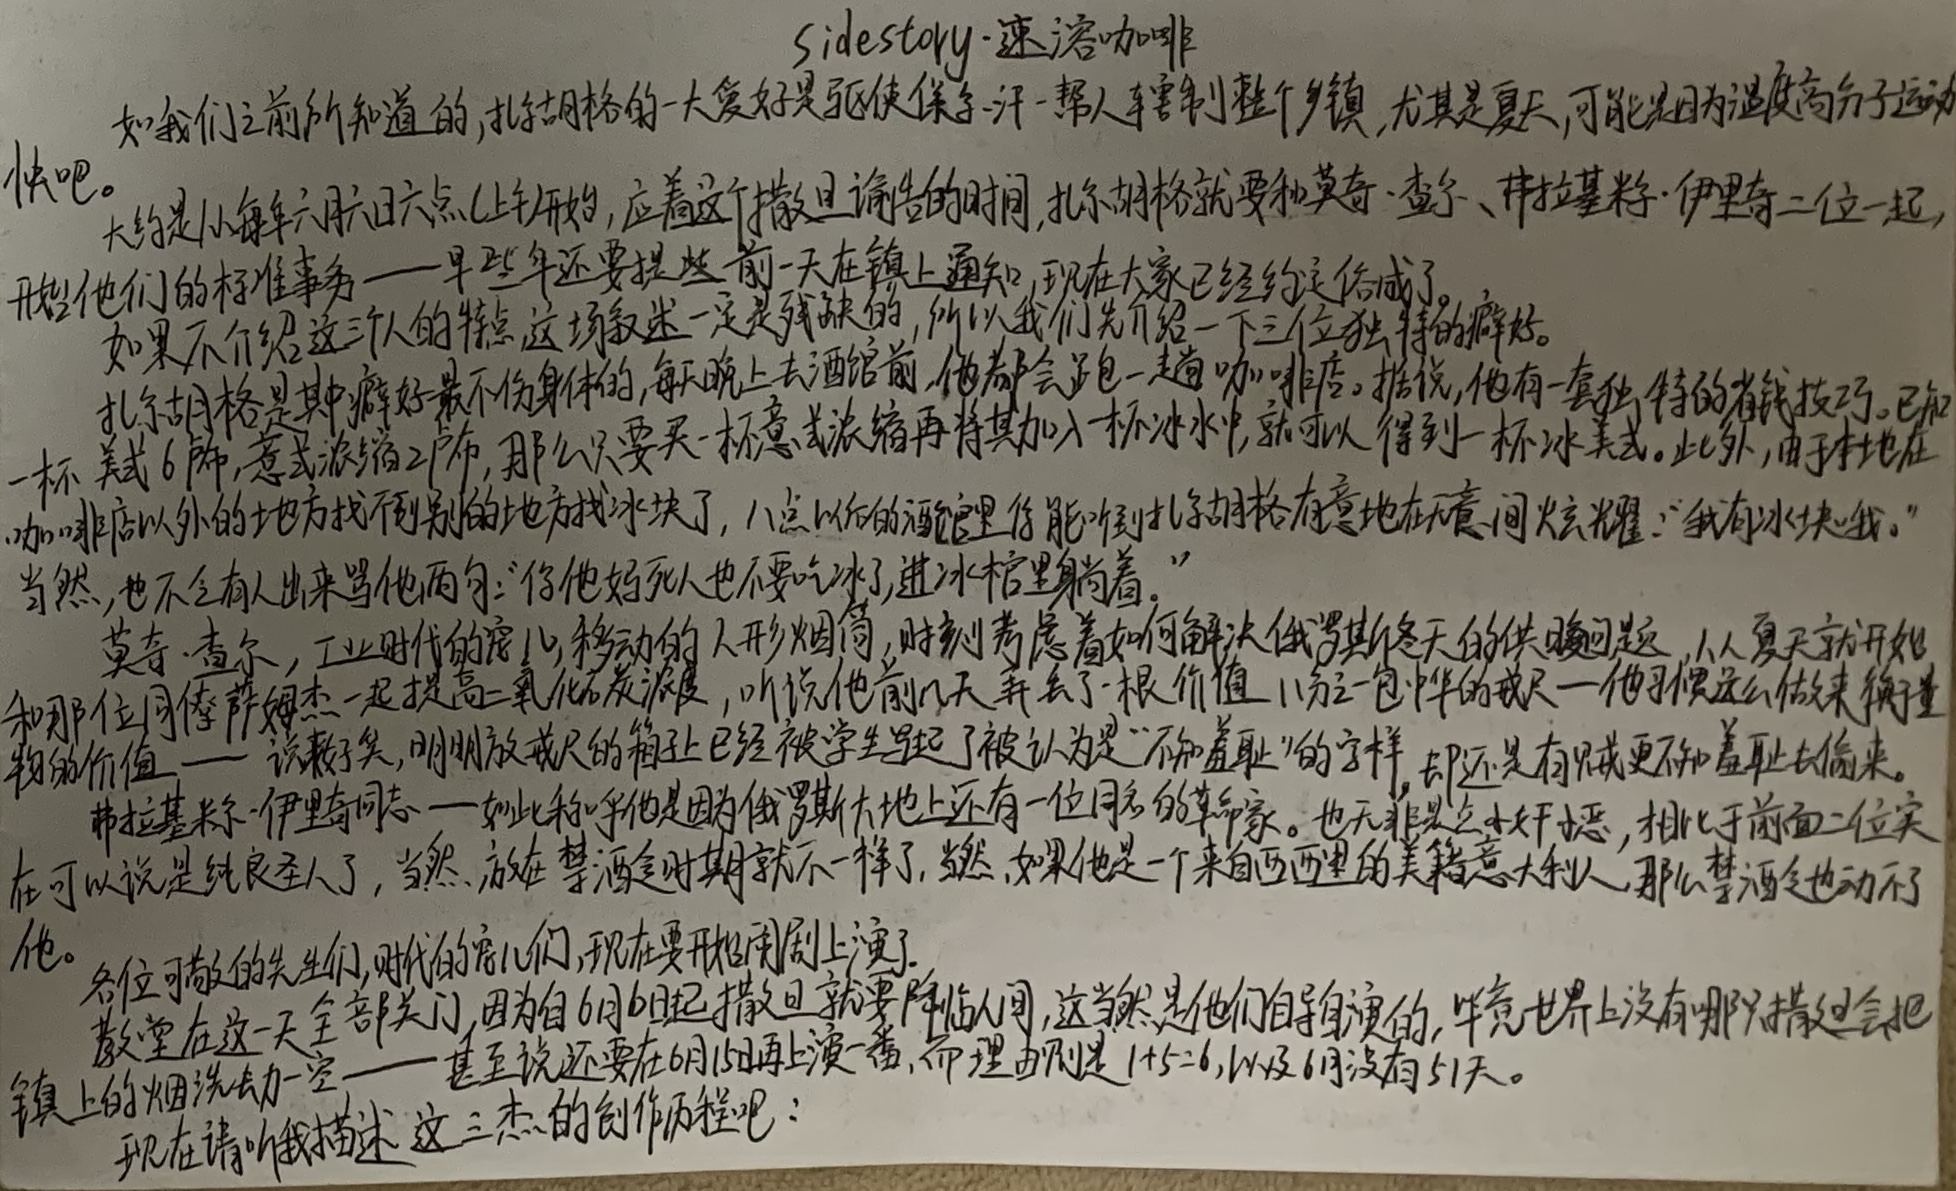 sidestory·速溶咖啡
如我们之前所知道的,扎尔胡格的一大爱好是驱使保尔·汗一帮人辖制整个乡镇,尤其是夏天,可能是因为温度高分子运动
快吧。
大约是从每年六月六日六点(上午)开始,应着这个撒旦谕告的时间,扎尔胡格就要和莫奇·查尔、弗拉基米尔·伊里奇二位一起,
开始他们的标准事务——早些年还要提些前一天在镇上通知,现在大家已经约定俗成了。
如果不介绍这三个人的特点,这场叙述一定是残缺的,所以我们先介绍一下三位独特的癖好。
扎尔胡格是其中癖好最不伤身体的,每天晚上去酒馆前,他都会跑一趟咖啡店。据说,他有一套独特的省钱技巧。已知
一杯美式6卢布,意式浓缩2卢布,那么只要买一杯意式浓缩再将其加入一杯冰水中,就可以得到一杯冰美式。此外,由于本地在
咖啡店以外的地方找不到别的地方找冰块了,八点以后的酒馆里你能听到扎尔胡格有意地在无意间炫耀:“我有冰块哦。”
当然,也不乏有人出来骂他两句:“你他妈死人也不要吃冰了,进冰棺里躺着。”
莫奇·查尔,工业时代的宠儿,移动的人形烟筒,时刻考虑着如何解决俄罗斯冬天的供暖问题,从夏天就开始
和那位同僚萨姆杰一起提高二氧化碳浓度,听说他前几天弄丢了一根价值11分之一包中华的戒尺—他习惯这么做来衡量
物的价值——说来好笑,明明放戒尺的箱子上已经被学生写起了被认为是“不知羞耻”的字样,却还是有贼更不知羞耻去偷来。
弗拉基米尔·伊里奇同志——如此称呼他是因为俄罗斯大地上还有一位同名的革命家。也无非是点小奸小恶,相比于前面二位实
在可以说是纯良圣人了,当然,放在禁酒令时期就不一样了,当然,如果他是一个来自西西里的美籍意大利人,那么禁酒令也动不了
他。
各位可敬的先生们,时代的宠儿们,现在要开始闹剧上演了。
教堂在这一天全部关门,因为自6月6日起撒旦就要降临人间,这当然是他们自导自演的,毕竟世界上没有哪只撒旦会把
镇上的烟洗劫一空——甚至说还要在6月15日再上演一番,而理由则是1+5=6,以及6月没有51天。
现在请听我描述这三杰的创作历程吧: